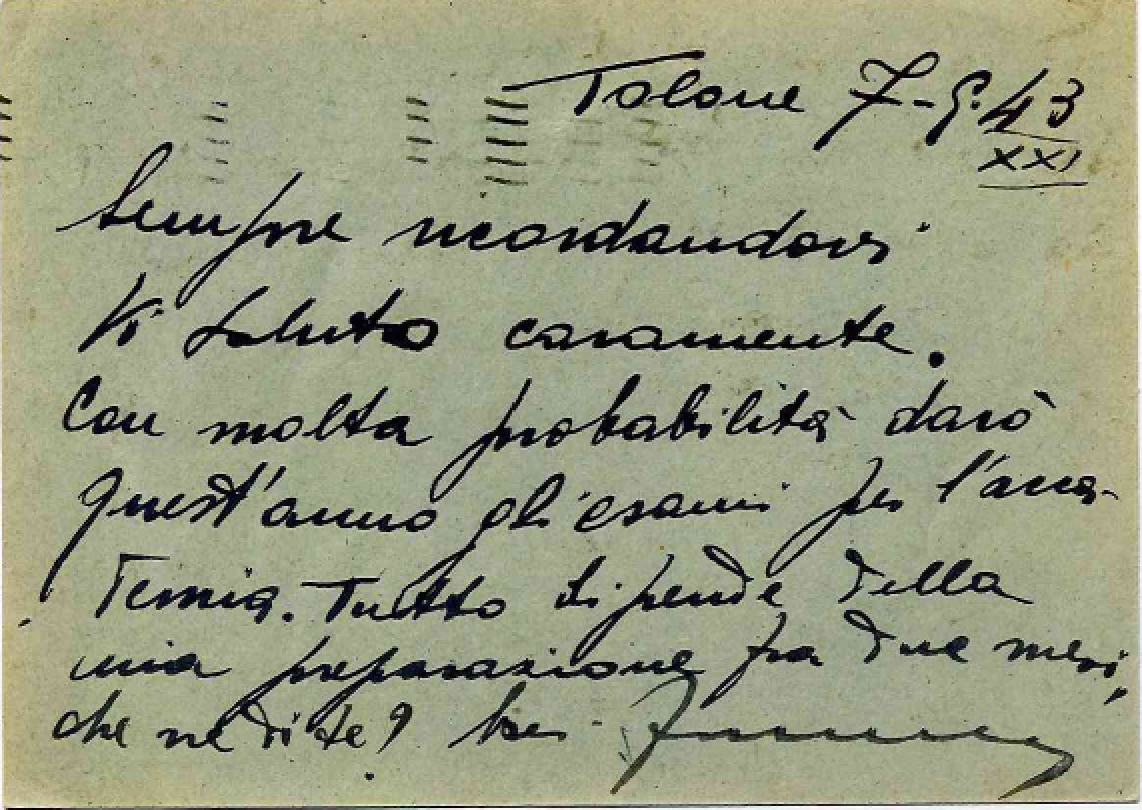 Tolone 7-5-43
XXI
Sempre ricordandovi
Vi saluto caramente.
Con molta probabilità darò
quest'anno gli esami per l'acca-
demia. Tutto dipende dalla
mia preparazione fra due mesi,
che ne dite?